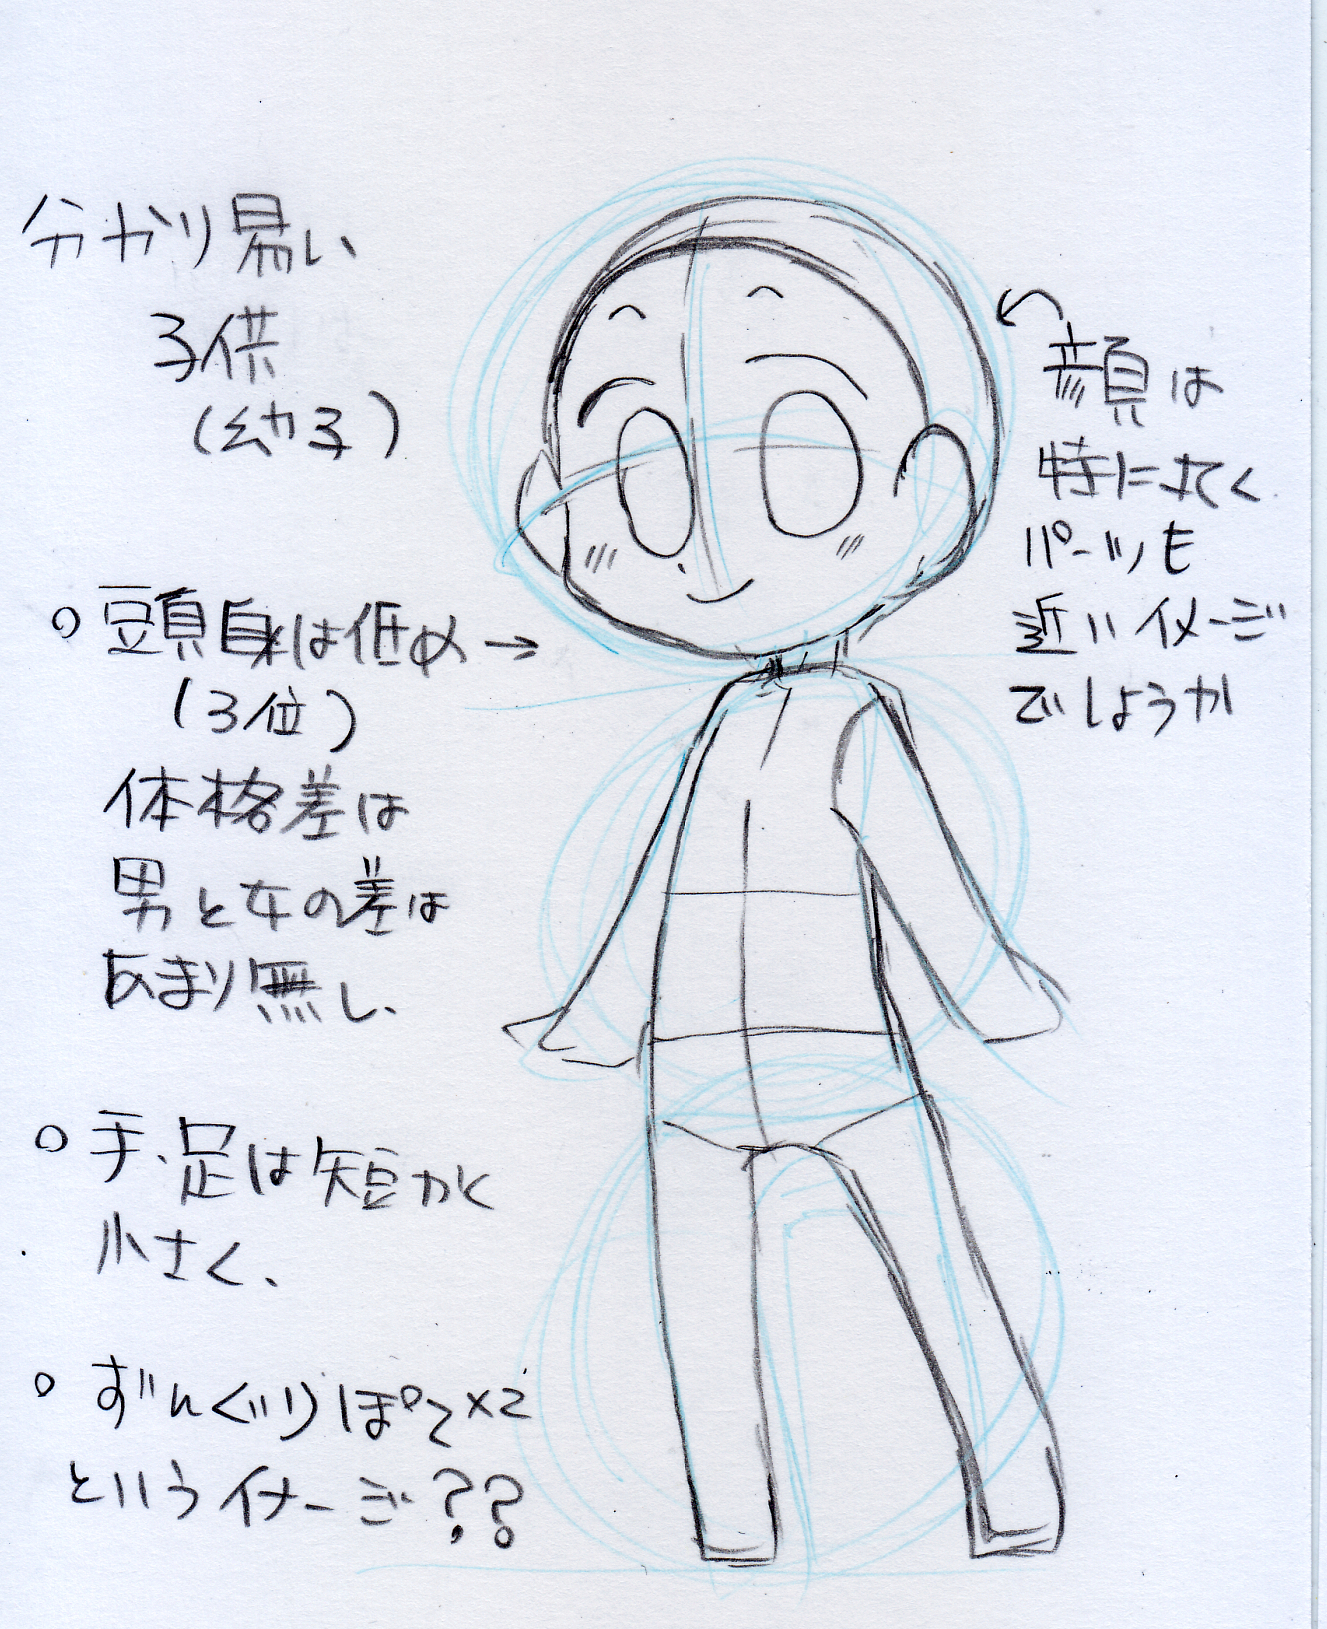 分かり易い
子供
(幼子)
○ 頭身は低め→
(3位)
体格差は
男と女の差は
あまり無し
○ 手、足は短かく
小さく、
○ ずんぐりぽて×2
というイメージ??
顔は
特にまてく
パーツも
近いイメージ
でしょうか